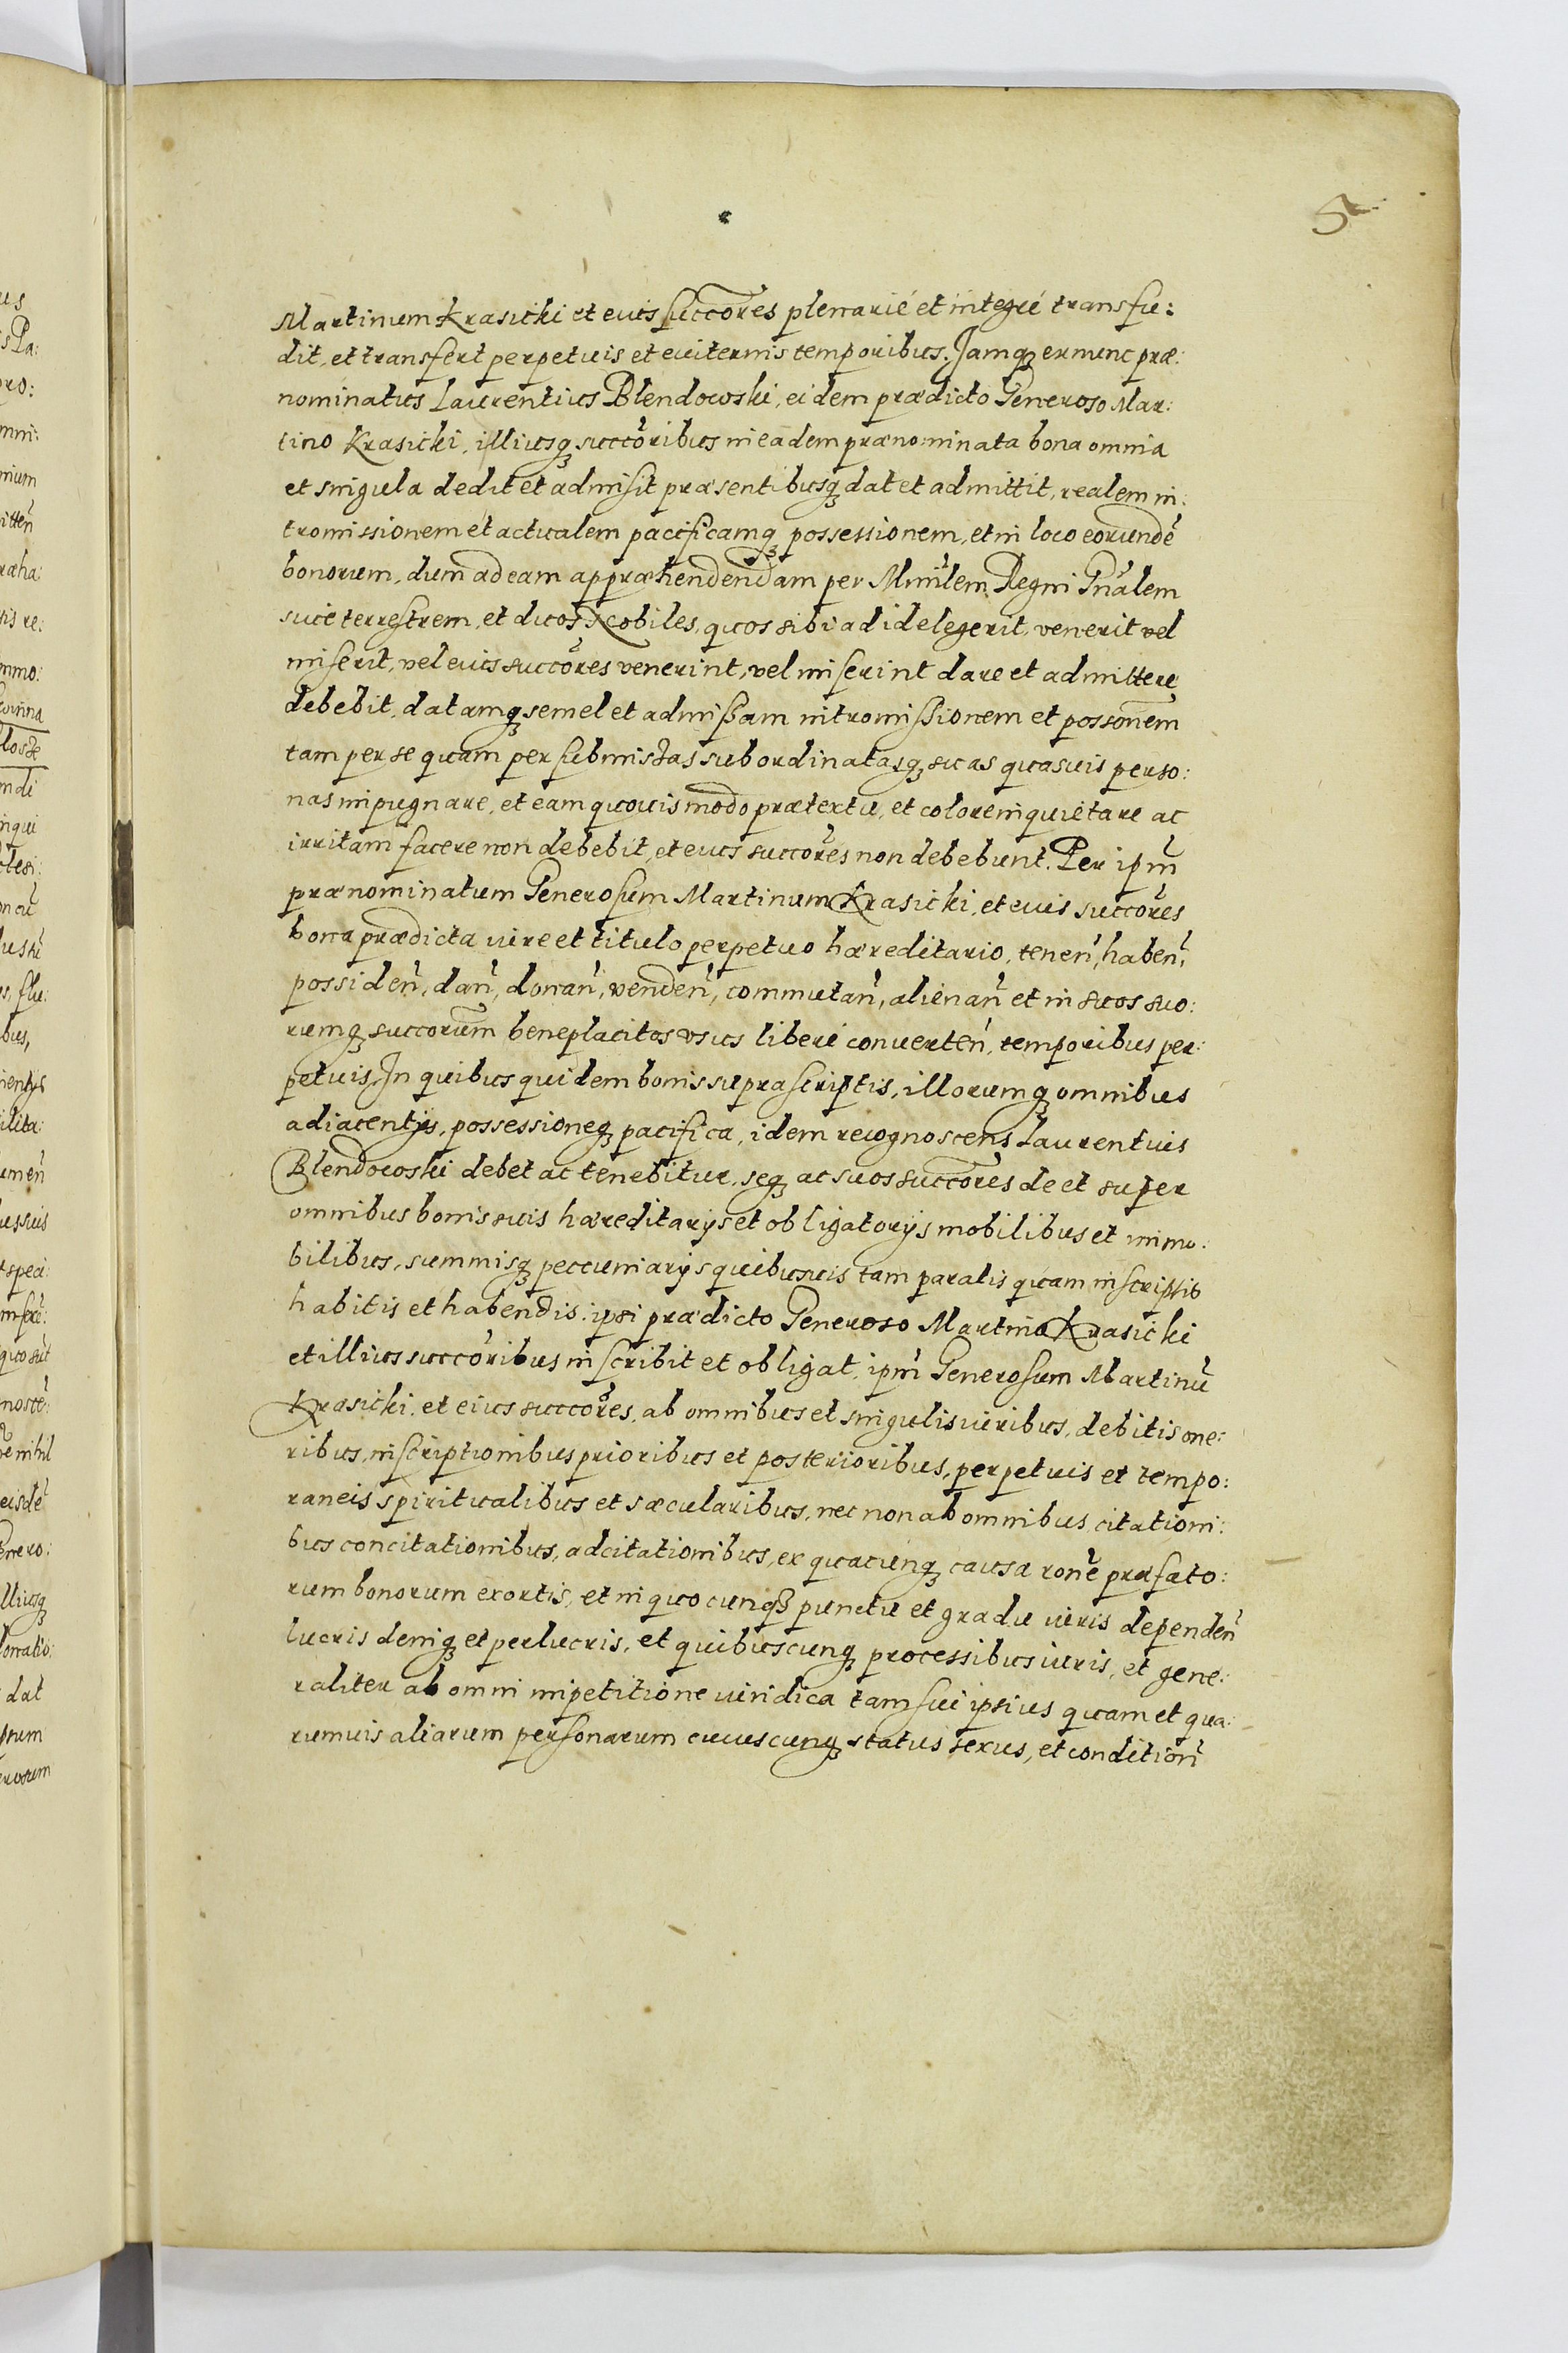 5
Martinum Krasicki et eius succõres plenarié et integré transfu:
dit, et transfert perpetuis et euiternis temporibus. Jamqꝫ ex nunc præ:
nominatus Laurentius Blendowski, eidem prædicto Generoso Mar:
tino Krasicki, illiusqꝫ succõribus in eadem prænominata bona omnia
et singula dedit et admisit præsentibusqꝫ dat et admittit, realem in:
tromissionem et actualem pacificamqꝫ possessionem, et in loco eorundẽ
bonorum, dum ad eam appræhendendam per Minr̃lem Regni Gñalem
siue terrestrem, et duos Nobiles, quos sibi ad id elegerit, venerit vel
miserit, vel eius succõres venerint, vel miserint dare et admittere
debebit, datamqꝫ semel et admissam intromissionem et possõnem
tam per se quam per submissas subordinatasqꝫ suas quasuis perso:
nas impugnare, et eam quouis modo prætextu, et colore inquietare ac
irritam facere non debebit, et eius succõres non debebunt. Per ipm̃
prænominatum Generosum Martinum Krasicki, et eius succõres
bona prædicta iure et titulo perpetuo hæreditario, teneñ, habeñ,
possideñ, dañ, donañ, vendeñ, commutañ, alienañ et in suos suo:
rumqꝫ succorũm beneplacitos vsus liberé conuerteñ, temporibus per:
petuis. In quibus quidem bonis suprascriptis, illorumqꝫ omnibus
adiacentijs, possessioneqꝫ pacifica, idem recognoscens Laurentius
Blendowski debet ac tenebitur, seqꝫ ac suos succõres de et super
omnibus bonis suis hæreditarijs et obligatorijs mobilibus et immo:
bilibus, summisqꝫ pecuniarijs quibusuis tam paratis quam inscriptis
habitis et habendis, ipsi prædicto Generoso Martino Krasicki
et illius succõribus inscribit et obligat, ipm̃ Generosum Martinũ
Krasicki, et eius succõres, ab omnibus et singulis iuribus, debitis one:
ribus, inscriptionibus prioribus et posterioribus, perpetuis et tempo:
raneis spiritualibus et sæcularibus, nec non ab omnibus citationi:
bus concitationibus, adcitationibus, ex quacunqꝫ causa rõne præfato:
rum bonorum exortis, et in quocunqꝫ punctu et gradu iuris dependeñ
lucris deniqꝫ et perlucris, et quibuscunqꝫ processibus iuris, et gene:
raliter ab omni impetitione iuridica tam sui ipsius quam et qua:
rumuis aliarum personarum cuiuscunqꝫ status sexus, et conditioñ